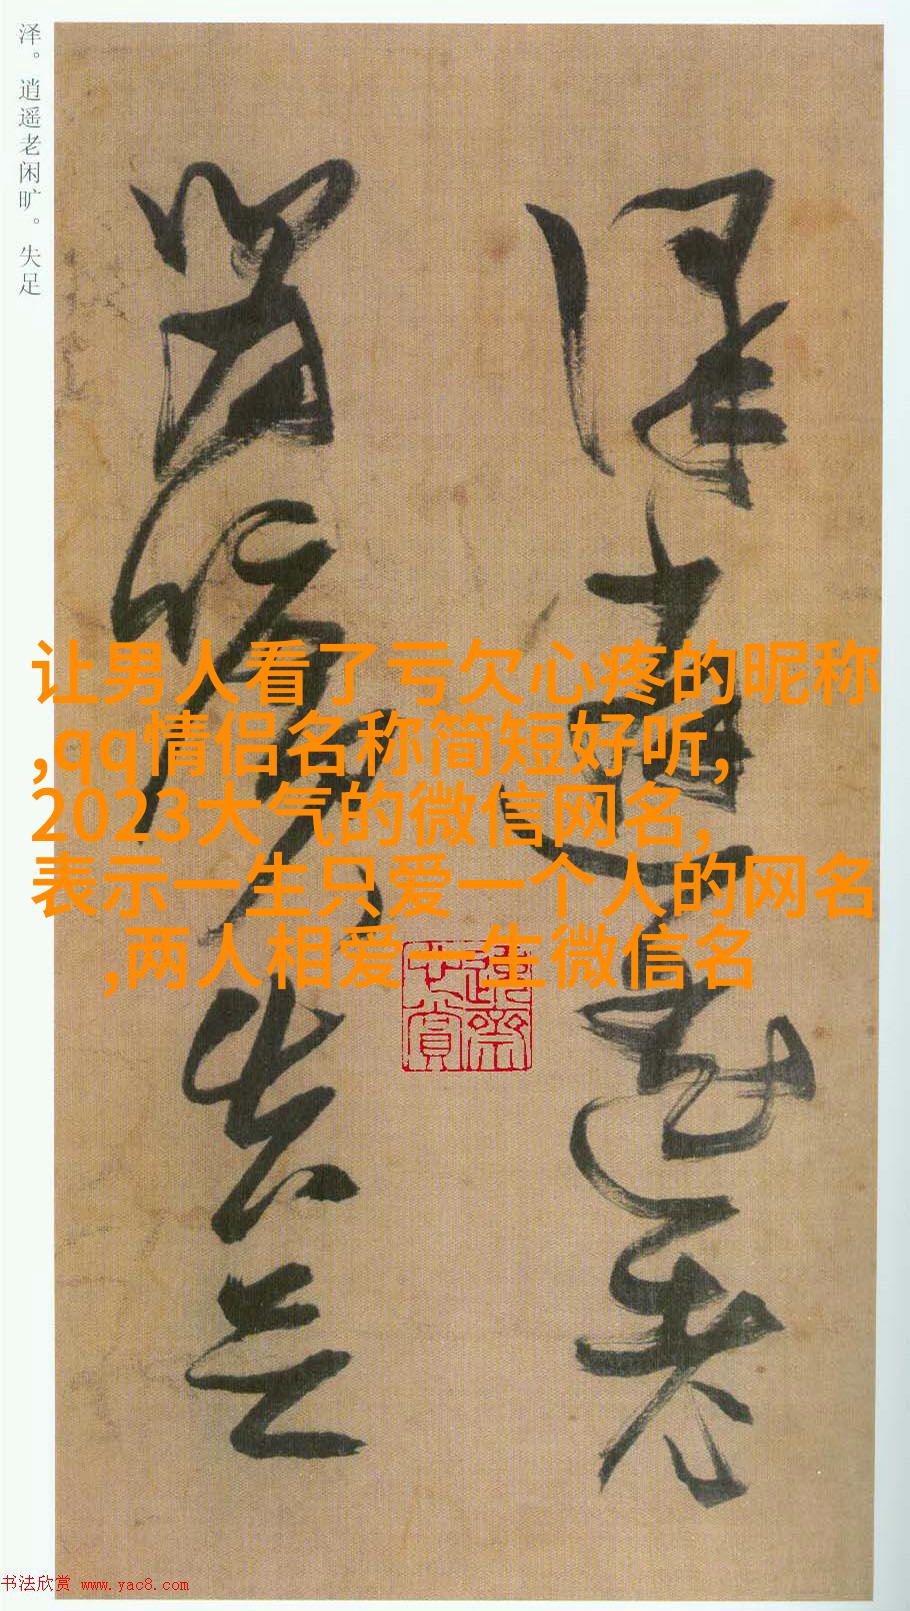 泽。逍遥老闲旷。失足
泽逍遥老
闲旷失足
让男人看了亏欠心疼的昵称
,qq情侣名称简短好听,
2023大气的微信网名,
表示一生只爱一个人的网名
,两人相爱一生微信名
书法欣赏 www.yac8.com